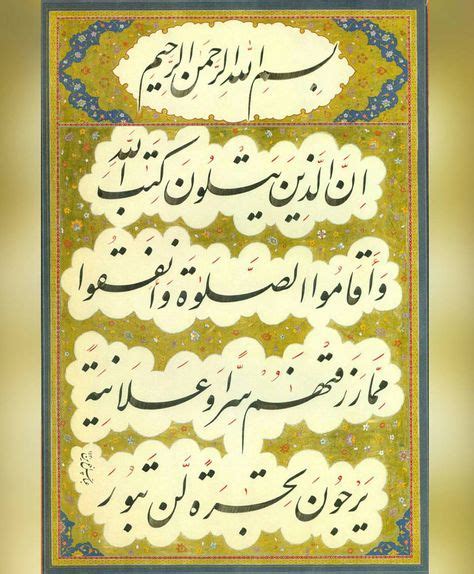 بسم الله الرحمن الرحيم
اِنَّ الَّذينَ يَتلُونَ كِتبَ اللهِ
وَأَقامُوا الصَّلوةَ وَأنفَقُوا
مِمّا رَزَقنهُم سِرًّا وَعَلانِيَةً
يَرجُونَ تِجرَةً لَن تَبُورَ